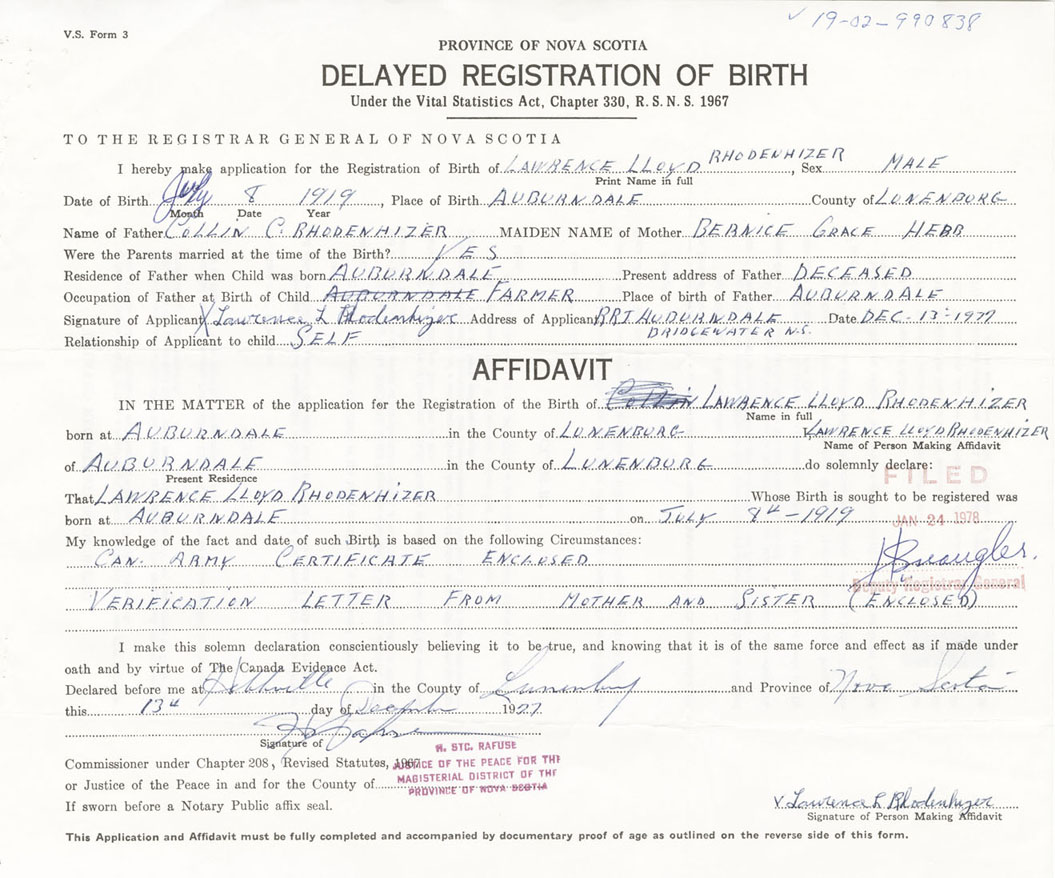 ✓ 19-02-990838
V.S. Form 3
PROVINCE OF NOVA SCOTIA
DELAYED REGISTRATION OF BIRTH
Under the Vital Statistics Act, Chapter 330, R. S. N. S. 1967
TO THE REGISTRAR GENERAL OF NOVA SCOTIA
I hereby make application for the Registration of Birth of LAWRENCE LLOYD RHODENHIZER, Sex MALE
Print Name in full
Date of Birth July 8 1919, Place of Birth AUBURNDALE County of LUNENBURG
Month Date Year
Name of Father COLLIN C. RHODENHIZER MAIDEN NAME of Mother BERNICE GRACE HEBB
Were the Parents married at the time of the Birth? YES
Residence of Father when Child was born AUBURNDALE Present address of Father DECEASED
Occupation of Father at Birth of Child AUBURNDALE FARMER Place of birth of Father AUBURNDALE
Signature of Applicant X Lawrence L Rhodenhizer Address of Applicant RR1 AUBURNDALE Date DEC-13-1977
BRIDGEWATER N.S.
Relationship of Applicant to child SELF
AFFIDAVIT
IN THE MATTER of the application for the Registration of the Birth of Collin LAWRENCE LLOYD RHODENHIZER
Name in full
born at AUBURNDALE in the County of LUNENBURG LAWRENCE LLOYD RHODENHIZER
Name of Person Making Affidavit
of AUBURNDALE in the County of LUNENBURG do solemnly declare:
Present Residence
FILED
That LAWRENCE LLOYD RHODENHIZER Whose Birth is sought to be registered was
born at AUBURNDALE on JULY 8th-1919
JAN 24 1978
My knowledge of the fact and date of such Birth is based on the following Circumstances:
CAN. ARMY CERTIFICATE ENCLOSED
Deputy Registrar General
VERIFICATION LETTER FROM MOTHER AND SISTER (ENCLOSED)
I make this solemn declaration conscientiously believing it to be true, and knowing that it is of the same force and effect as if made under
oath and by virtue of The Canada Evidence Act.
Declared before me at Hebbville in the County of Lunenburg and Province of Nova Scotia
this 13th day of December 1977
Signature of
H. STC. RAFUSE
Commissioner under Chapter 208, Revised Statutes, 1967
JUSTICE OF THE PEACE FOR THE
or Justice of the Peace in and for the County of
MAGISTERIAL DISTRICT OF THE
PROVINCE OF NOVA SCOTIA
If sworn before a Notary Public affix seal.
v Lawrence L Rhodenhizer
Signature of Person Making Affidavit
This Application and Affidavit must be fully completed and accompanied by documentary proof of age as outlined on the reverse side of this form.